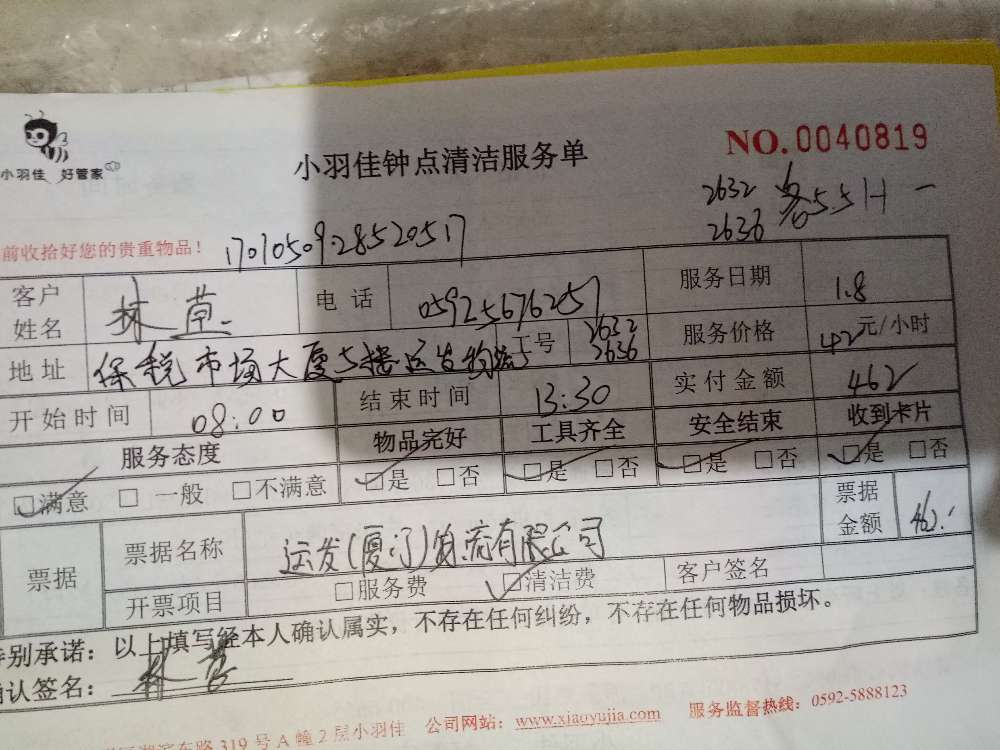 小羽佳 好管家
小羽佳钟点清洁服务单
NO.0040819
2632 各5.5H
2636
前收拾好您的贵重物品!
1701050928520517
客户姓名 林草 电话 05925676257 服务日期 1.8
地址 保税市场大厦5楼运发物流 工号 2632 2636 服务价格 42元/小时
开始时间 08:00 结束时间 13:30 实付金额 462
服务态度 物品完好 工具齐全 安全结束 收到卡片
☑满意 □ 一般 □不满意 ☑是 □否 ☑是 □否 ☑是 □否 ☑是 □否
票据 票据名称 运发(厦门)物流有限公司 票据金额 462.
开票项目 □服务费 ☑清洁费 客户签名
特别承诺:以上填写经本人确认属实,不存在任何纠纷,不存在任何物品损坏。
确认签名:
湖滨东路 319 号 A 幢 2 层小羽佳 公司网站:www.xiaoyujia.com 服务监督热线:0592-5888123